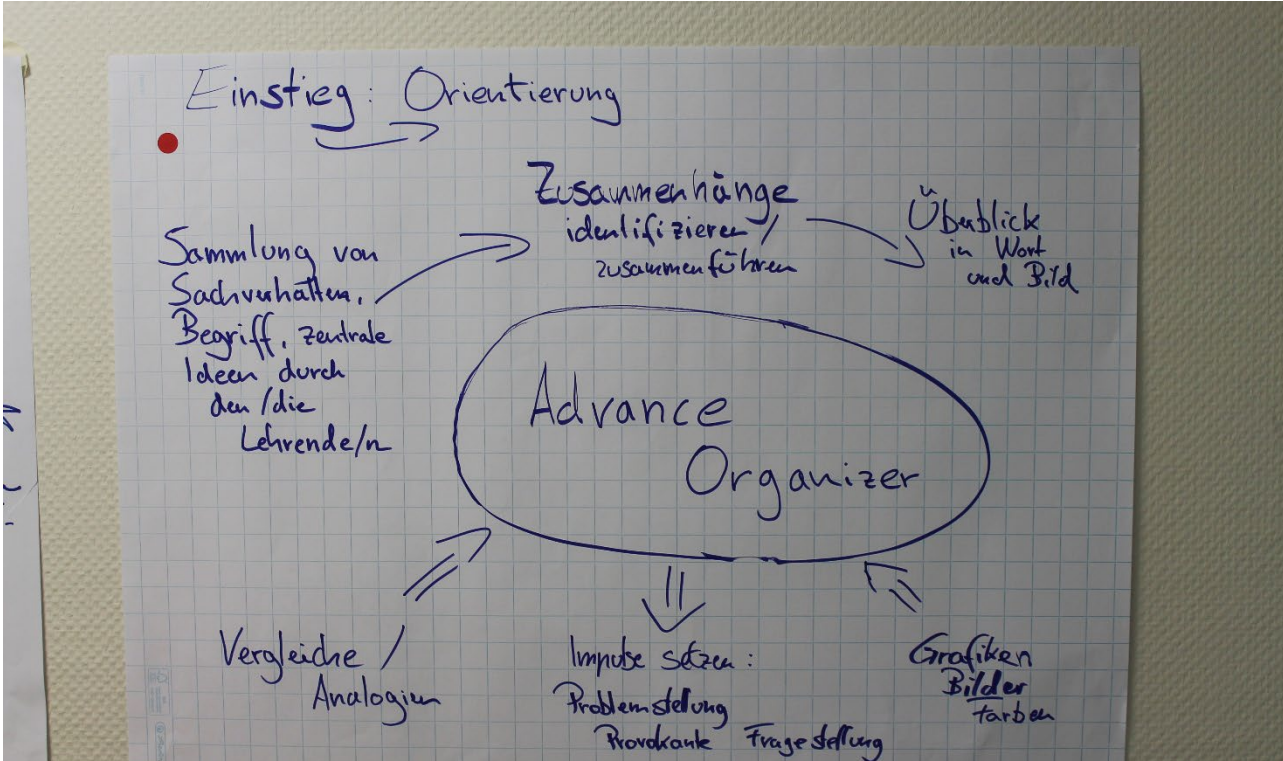 Einstieg: Orientierung
Sammlung von
Sachverhalten,
Begriff, zentrale
Ideen durch
den/die
Lehrende/n
Zusammenhänge
identifizieren /
zusammenführen
Überblick
in Wort
und Bild
Advance
Organizer
Vergleiche /
Analogien
Impulse setzen:
Problemstellung
Provokante Fragestellung
Grafiken
Bilder
Farben